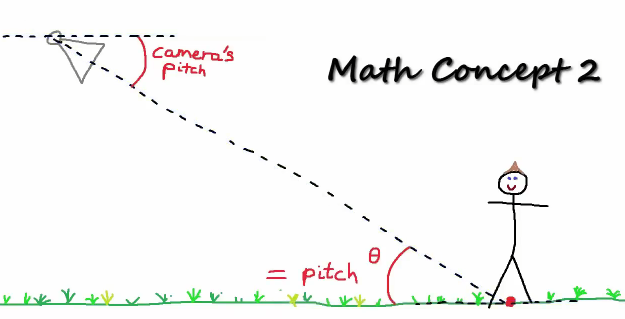 camera's
pitch
Math Concept 2
= pitch θ